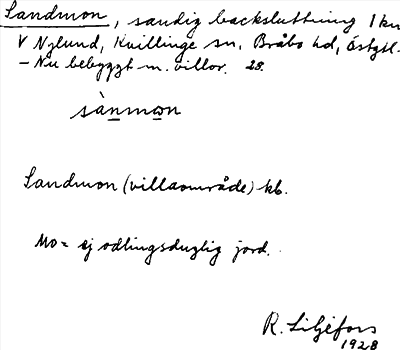 Sandmon, sandig backsluttning 1 km
V Nylund, Kvillinge sn, Bråbo hd, Östgtl.
- Nu bebyggt m. villor. 28.
sànmon
Sandmon (villaområde) kb.
Mo = ej odlingsduglig jord.
R. Liljefors
1928